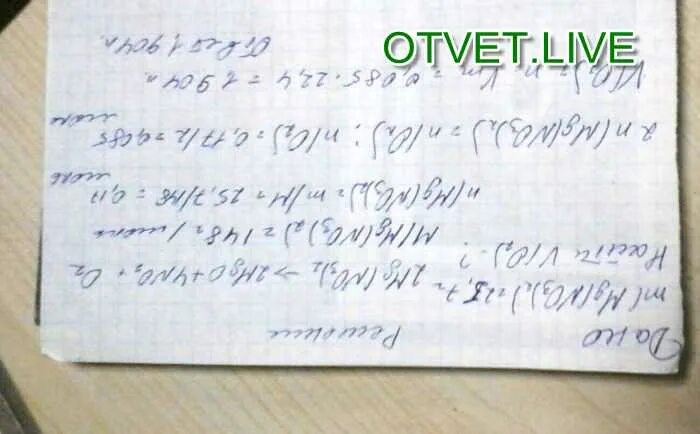 OTVET.LIVE
Дано Решение
m(Mg(NO3)2)=25,7г 2Mg(NO3)2 → 2MgO+4NO2+O2
Найти V(O2)-?
M(Mg(NO3)2)=148г/моль
n(Mg(NO3)2)=m/M=25,7/148=0,17
моль
2n(Mg(NO3)2)=n(O2); n(O2)=0,17/2=0,085
моль
V(O2)=n·Vm=0,085·22,4=1,904л.
Ответ 1,904л.